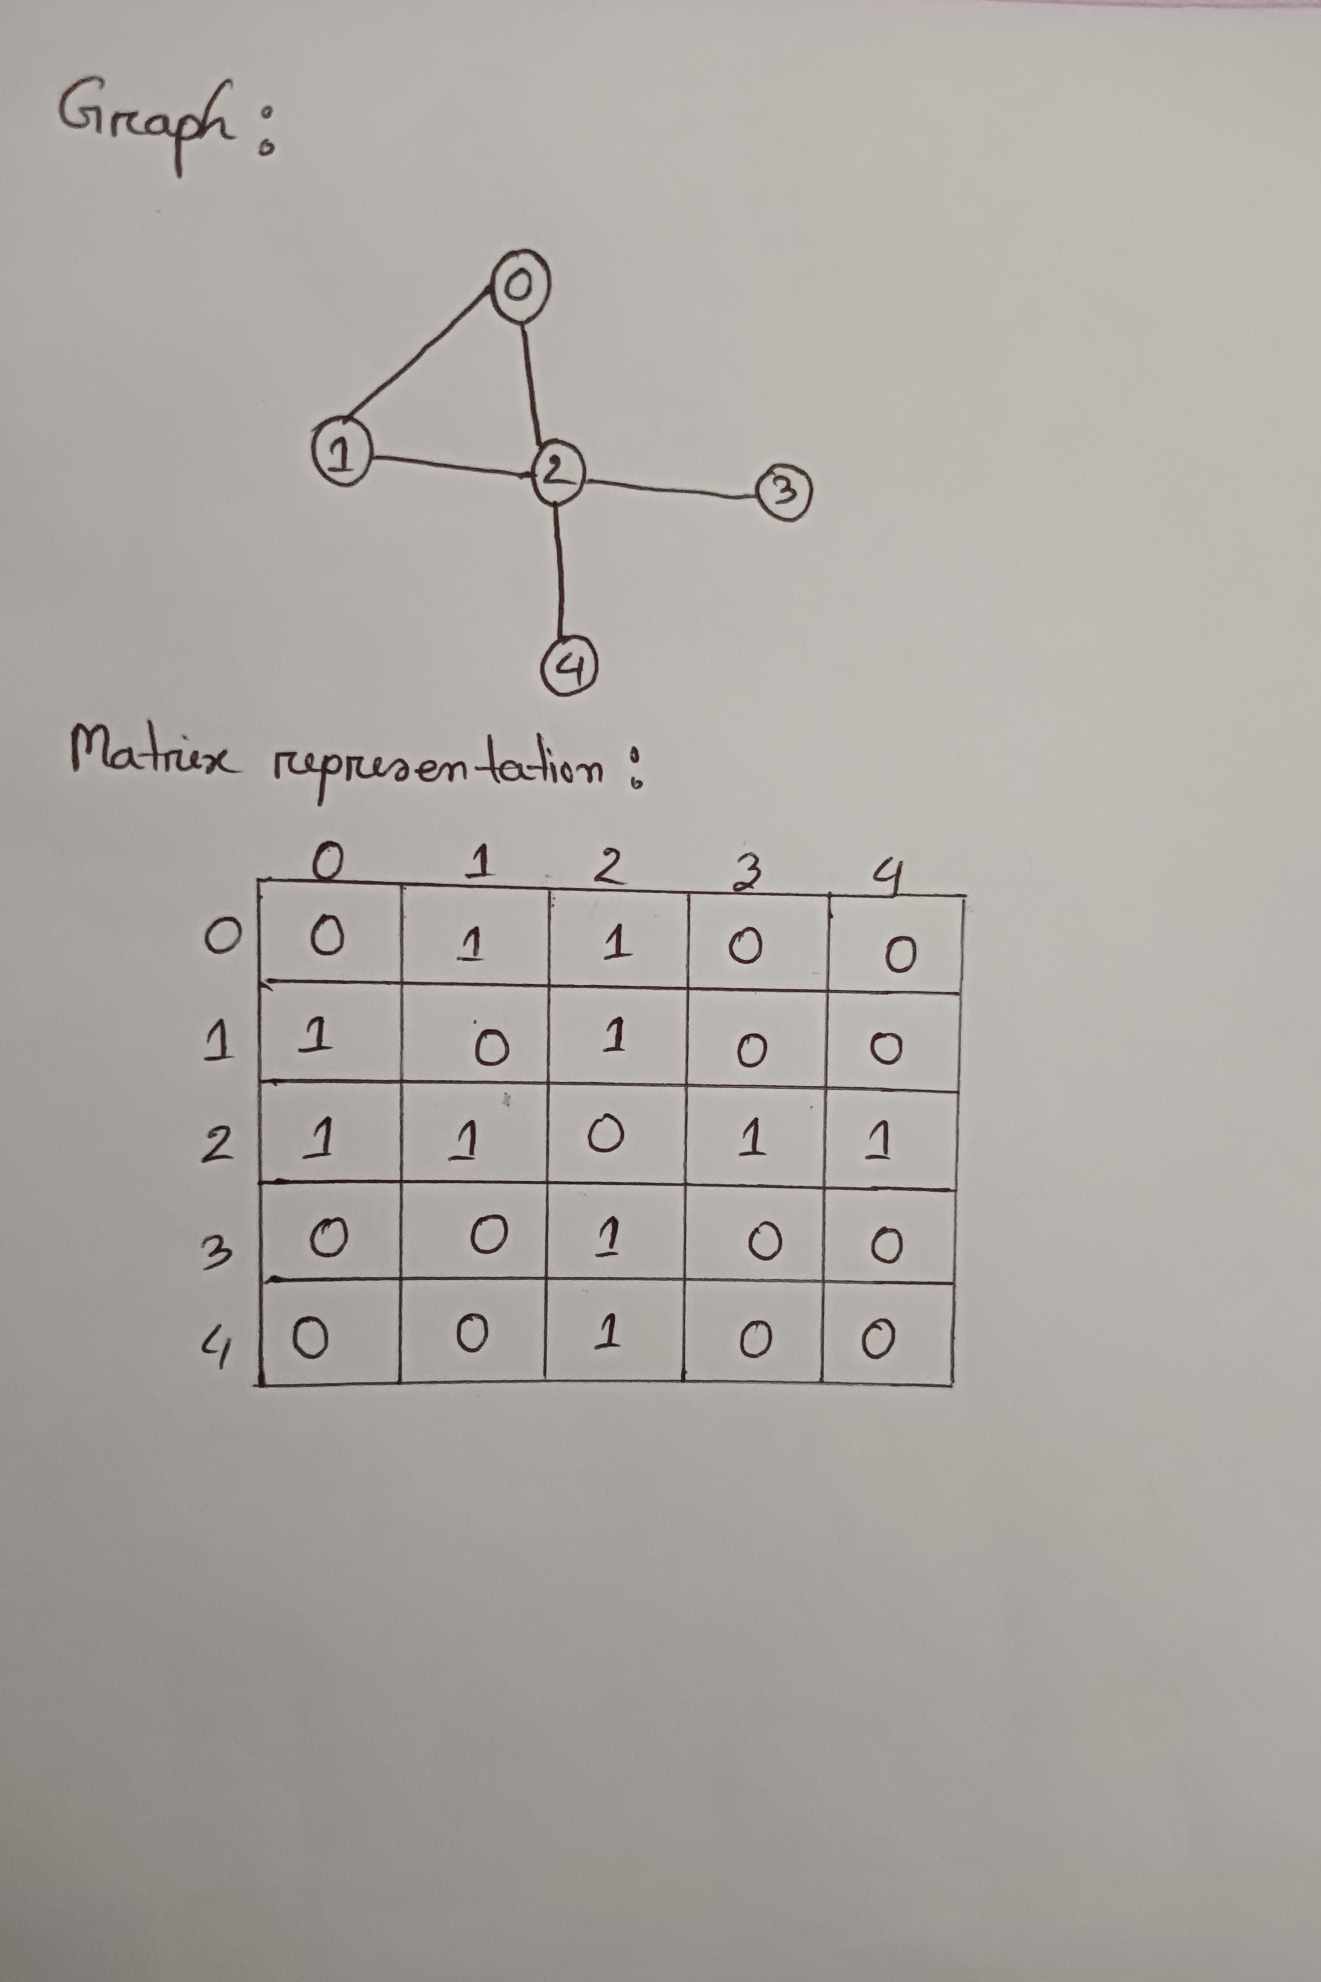 Graph:
0
1 2 3
4
Matrix representation:
0 1 2 3 4
0 0 1 1 0 0
1 1 0 1 0 0
2 1 1 0 1 1
3 0 0 1 0 0
4 0 0 1 0 0